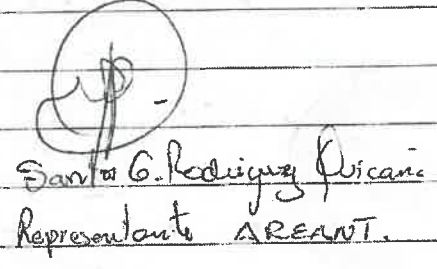 Santos G. Rodriguez Quicaní
Representante AREANT.